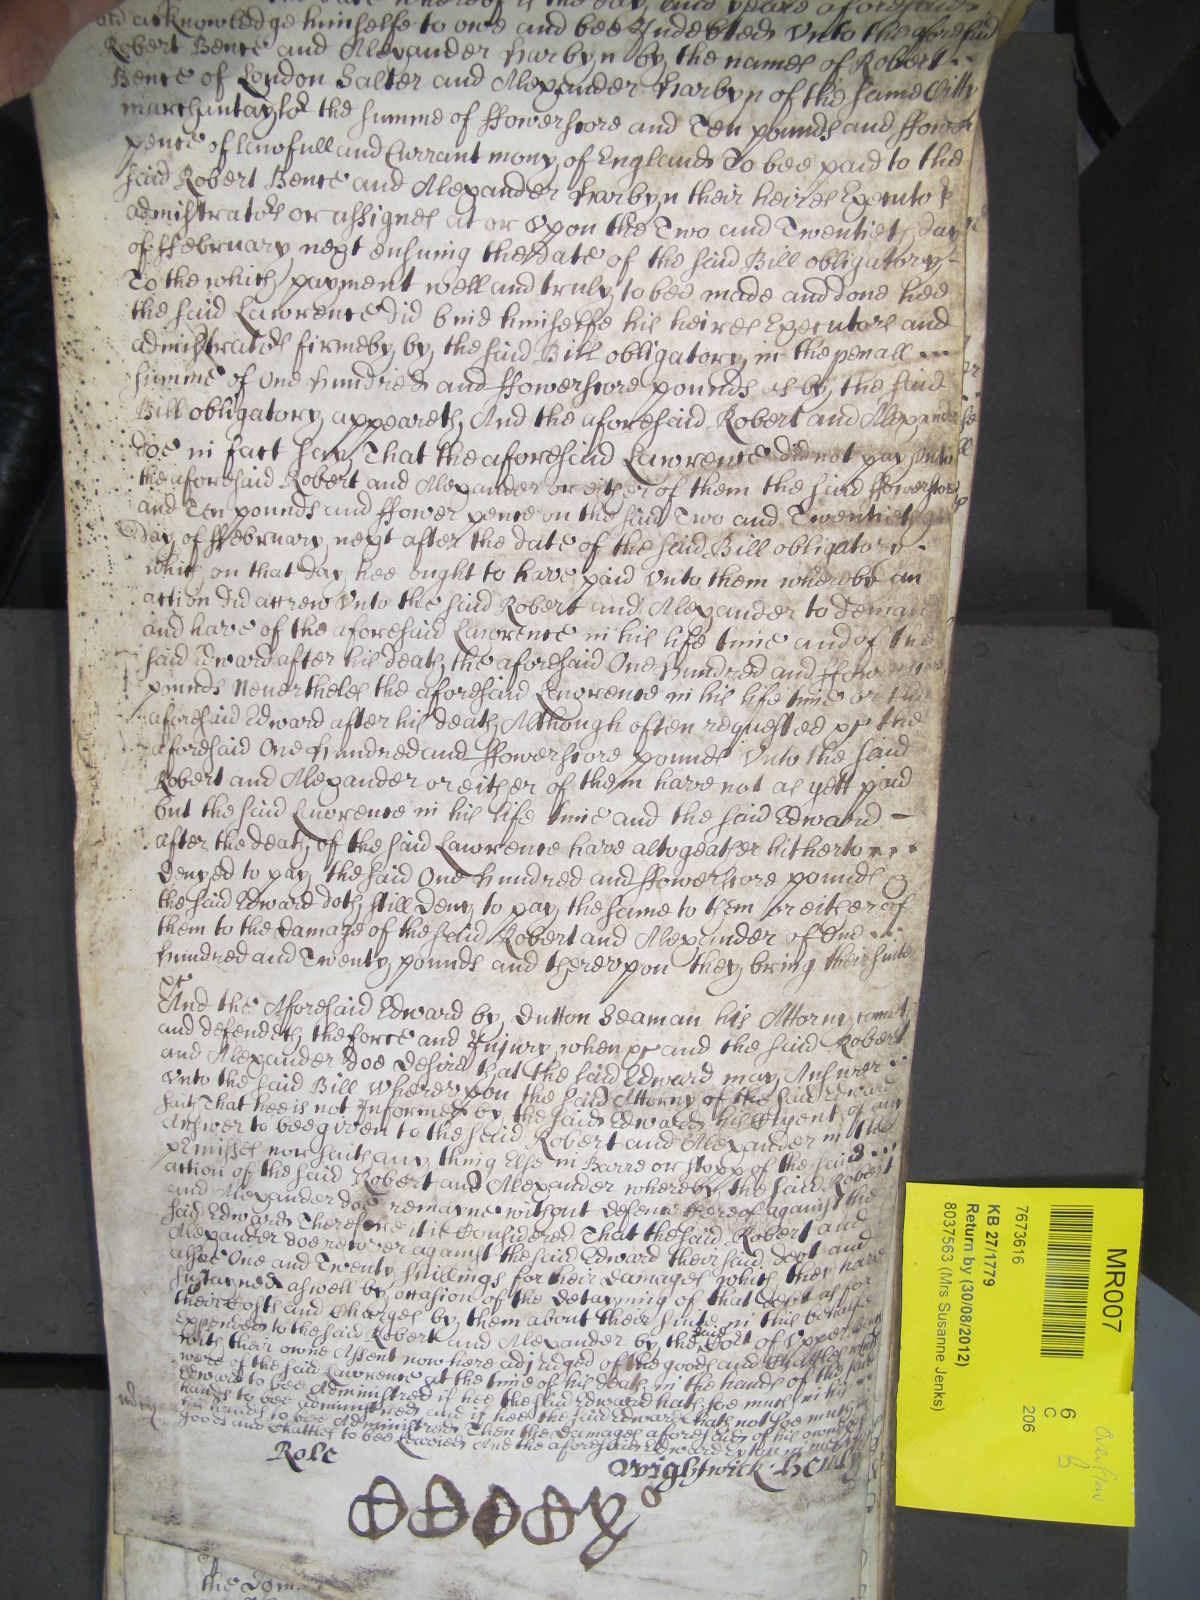 old acknowledge himselfe to owe and bee Indebted Unto the aforesaid
Robert Bence and Alexander Harbyn by the names of Robert
Bence of London Salter and Alexander Harbyn of the same Citty
marchantaylor the summe of ffowerscore and Ten pounds and ffower
pence of lawfull and Currant mony of England To bee paid to the
said Robert Bence and Alexander Harbyn their heires Executors
administrators or assignes at or upon the Two and Twentieth day
of ffebruary next ensuing the date of the said Bill obligatory
To the which payment well and truly to bee made and done hee
the said Lawrence did bind himselfe his heires Executors and
administrators firmely by the said Bill obligatory in the penall
summe of One hundred and ffowerscore pounds as by the said
Bill obligatory appeareth And the aforesaid Robert and Alexander
doe in fact say That the aforesaid Lawrence did not pay Unto
the aforesaid Robert and Alexander or either of them the said ffowerscore
and Ten pounds and ffower pence on the said Two and Twentieth
day of ffebruary next after the date of the said Bill obligatory
which on that day hee ought to have paid unto them whereby an
action did accrew unto the said Robert and Alexander to demand
and have of the aforesaid Lawrence in his life time and of the
said Edward after his death the aforesaid One hundred and ffowerscore
pounds Neverthelesse the aforesaid Lawrence in his life time or the
aforesaid Edward after his death Although often requested &c the
aforesaid One hundred and ffowerscore pounds Unto the said
Robert and Alexander or either of them have not as yett paid
but the said Lawrence in his life time and the said Edward
after the death of the said Lawrence have altogeather hitherto
denyed to pay the said One hundred and ffowerscore pounds &
the said Edward doth still deny to pay the same to them or either of
them to the damage of the said Robert and Alexander of One
hundred and Twenty pounds and thereupon they bring their suite
&c
And the Aforesaid Edward by Dutton Seaman his Attorny cometh
and defendeth the force and Injury when &c and the said Robert
and Alexander doe desire that the said Edward may Answer
unto the said Bill Whereupon the said Attorny of the said Edward
saith That hee is not Informed by the said Edward his Clyent of any
Answer to bee given to the said Robert and Alexander in the
premisses nor saith any thing Else in Barre or stopp of the said
action of the said Robert and Alexander whereby the said Robert
and Alexander doe remayne without defence thereof against the
said Edward Therefore it is Considered That the said Robert and
Alexander doe recover against the said Edward their said debt and
alsoe One and Twenty shillings for their damages which they have
sustayned aswell by occasion of the detayning of that debt as for
their Costs and Charges by them about their suite in this behalfe
expended to the said Robert and Alexander by the said Cort of Upper Bench
with their owne Assent now here adjudged of the goods and Chattles which
were of the said Lawrence at the time of his death in the hands of the said
Edward to bee Administred if hee the said Edward hath soe much in his
hands to bee Administred and if hee the said Edward hath not soe much in
his hands to bee Administred Then the damages aforesaid of his owne proper
goods and Chattles to bee Leavied And the aforesaid Edward
mercy
Role
Wightwick: Henly
MR007
7673616
KB 27/1779
Return by (30/08/2012)
8037563 (Mrs Susanne Jenks)
6
C
206
Overflow